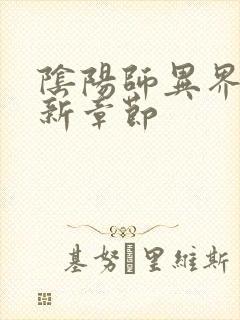 陰陽師異界
新章節
基努里維斯